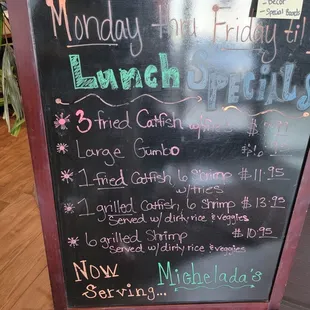 Decor
- Special Boards
Monday thru Friday til
Lunch Specials
3 fried Catfish w/fries
Large Gumbo
1-fried Catfish 6 Shrimp $11.95
w/fries
1 grilled Catfish, 6 Shrimp $13.95
Served w/ dirty rice & veggies
6 grilled Shrimp $10.95
Served w/ dirty rice & veggies
Now Michelada's
Serving...